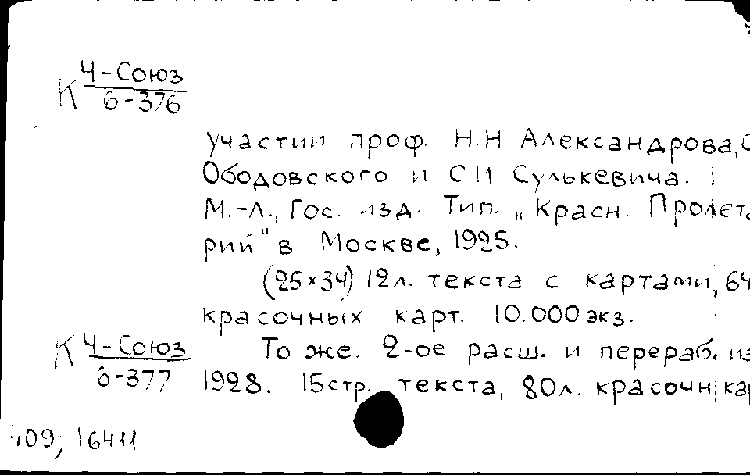 К Ч-Союз
6-376
участии проф. Н.Н Александрова,
Ободовского и С И Сулькевича.
М.-Л., Гос. изд. Тип. „Красн. Пролета
рий" в Москве, 1925.
(25×34) 12л. текста с картами, 64
красочных карт. 10.000 экз.
К Ч-Союз
6-377
То же. 2-ое расш. и перераб. из
1928. 15стр. текста, 80л. красочн. кар